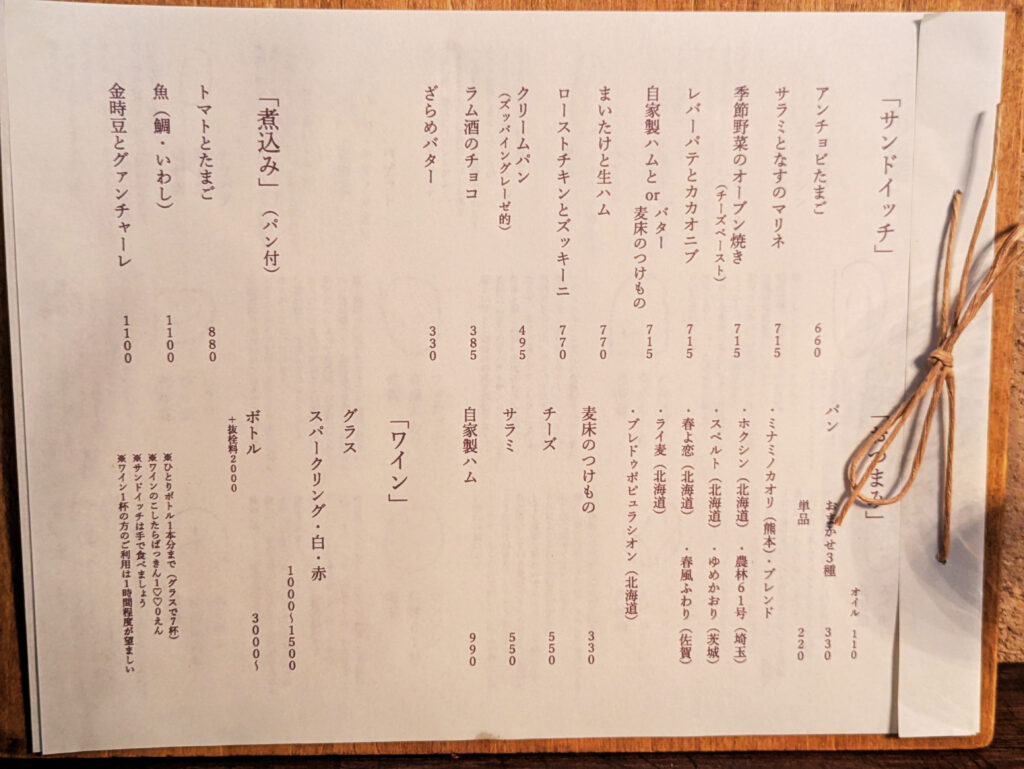 「サンドイッチ」
アンチョビたまご 660
サラミとなすのマリネ 715
季節野菜のオーブン焼き 715
（チーズペースト）
レバーパテとカカオニブ 715
自家製ハムと or バター 麦床のつけもの 715
まいたけと生ハム 770
ローストチキンとズッキーニ 770
クリームパン 495
（ズッパイングレーゼ的）
ラム酒のチョコ 385
ざらめバター 330
「煮込み」（パン付）
トマトとたまご 880
魚（鯛・いわし） 1100
金時豆とグァンチャーレ 1100
「おつまみ」
オイル 110
パン おまかせ3種 330
単品 220
・ミナミノカオリ（熊本）・ブレンド
・ホクシン（北海道）・農林61号（埼玉）
・スペルト（北海道）・ゆめかおり（茨城）
・春よ恋（北海道）・春風ふわり（佐賀）
・ライ麦（北海道）
・ブレドゥポピュラシオン（北海道）
麦床のつけもの 330
チーズ 550
サラミ 550
自家製ハム 990
「ワイン」
グラス
スパークリング・白・赤
1000〜1500
ボトル 3000〜
＋抜栓料2000
※ひとりボトル1本分まで（グラスで7杯）
※ワインのこしたらばっきん1♡♡0えん
※サンドイッチは手で食べましょう
※ワイン1杯の方のご利用は1時間程度が望ましい